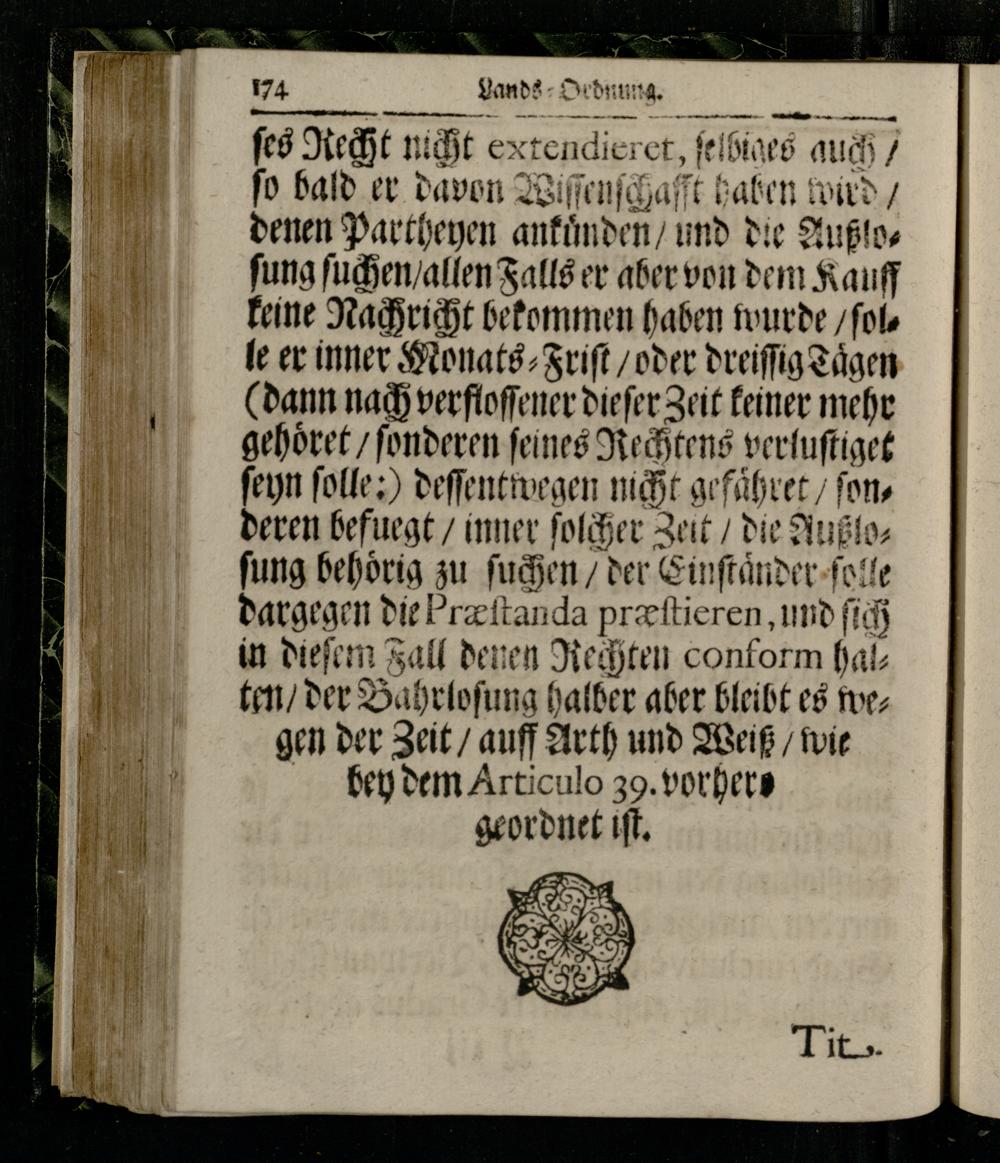 174 Lands-Ordnung.
ses Recht nicht extendieret, selbiges auch /
so bald er davon Wissenschafft haben wird /
denen Partheyen ankünden / und die Außlo-
sung suchen / allen Falls er aber von dem Kauff
keine Nachricht bekommen haben wurde / sol-
le er inner Monats-Frist / oder dreissig Tägen
(dann nach verflossener dieser Zeit keiner mehr
gehöret / sonderen seines Rechtens verlustiget
seyn solle:) dessentwegen nicht gefähret / son-
deren befuegt / inner solcher Zeit / die Außlo-
sung behörig zu suchen / der Einständer solle
dargegen die Præstanda præstieren, und sich
in diesem Fall denen Rechten conform hal-
ten / der Bahrlosung halber aber bleibt es we-
gen der Zeit / auff Arth und Weiß / wie
bey dem Articulo 39. vorher-
geordnet ist.
Tit.